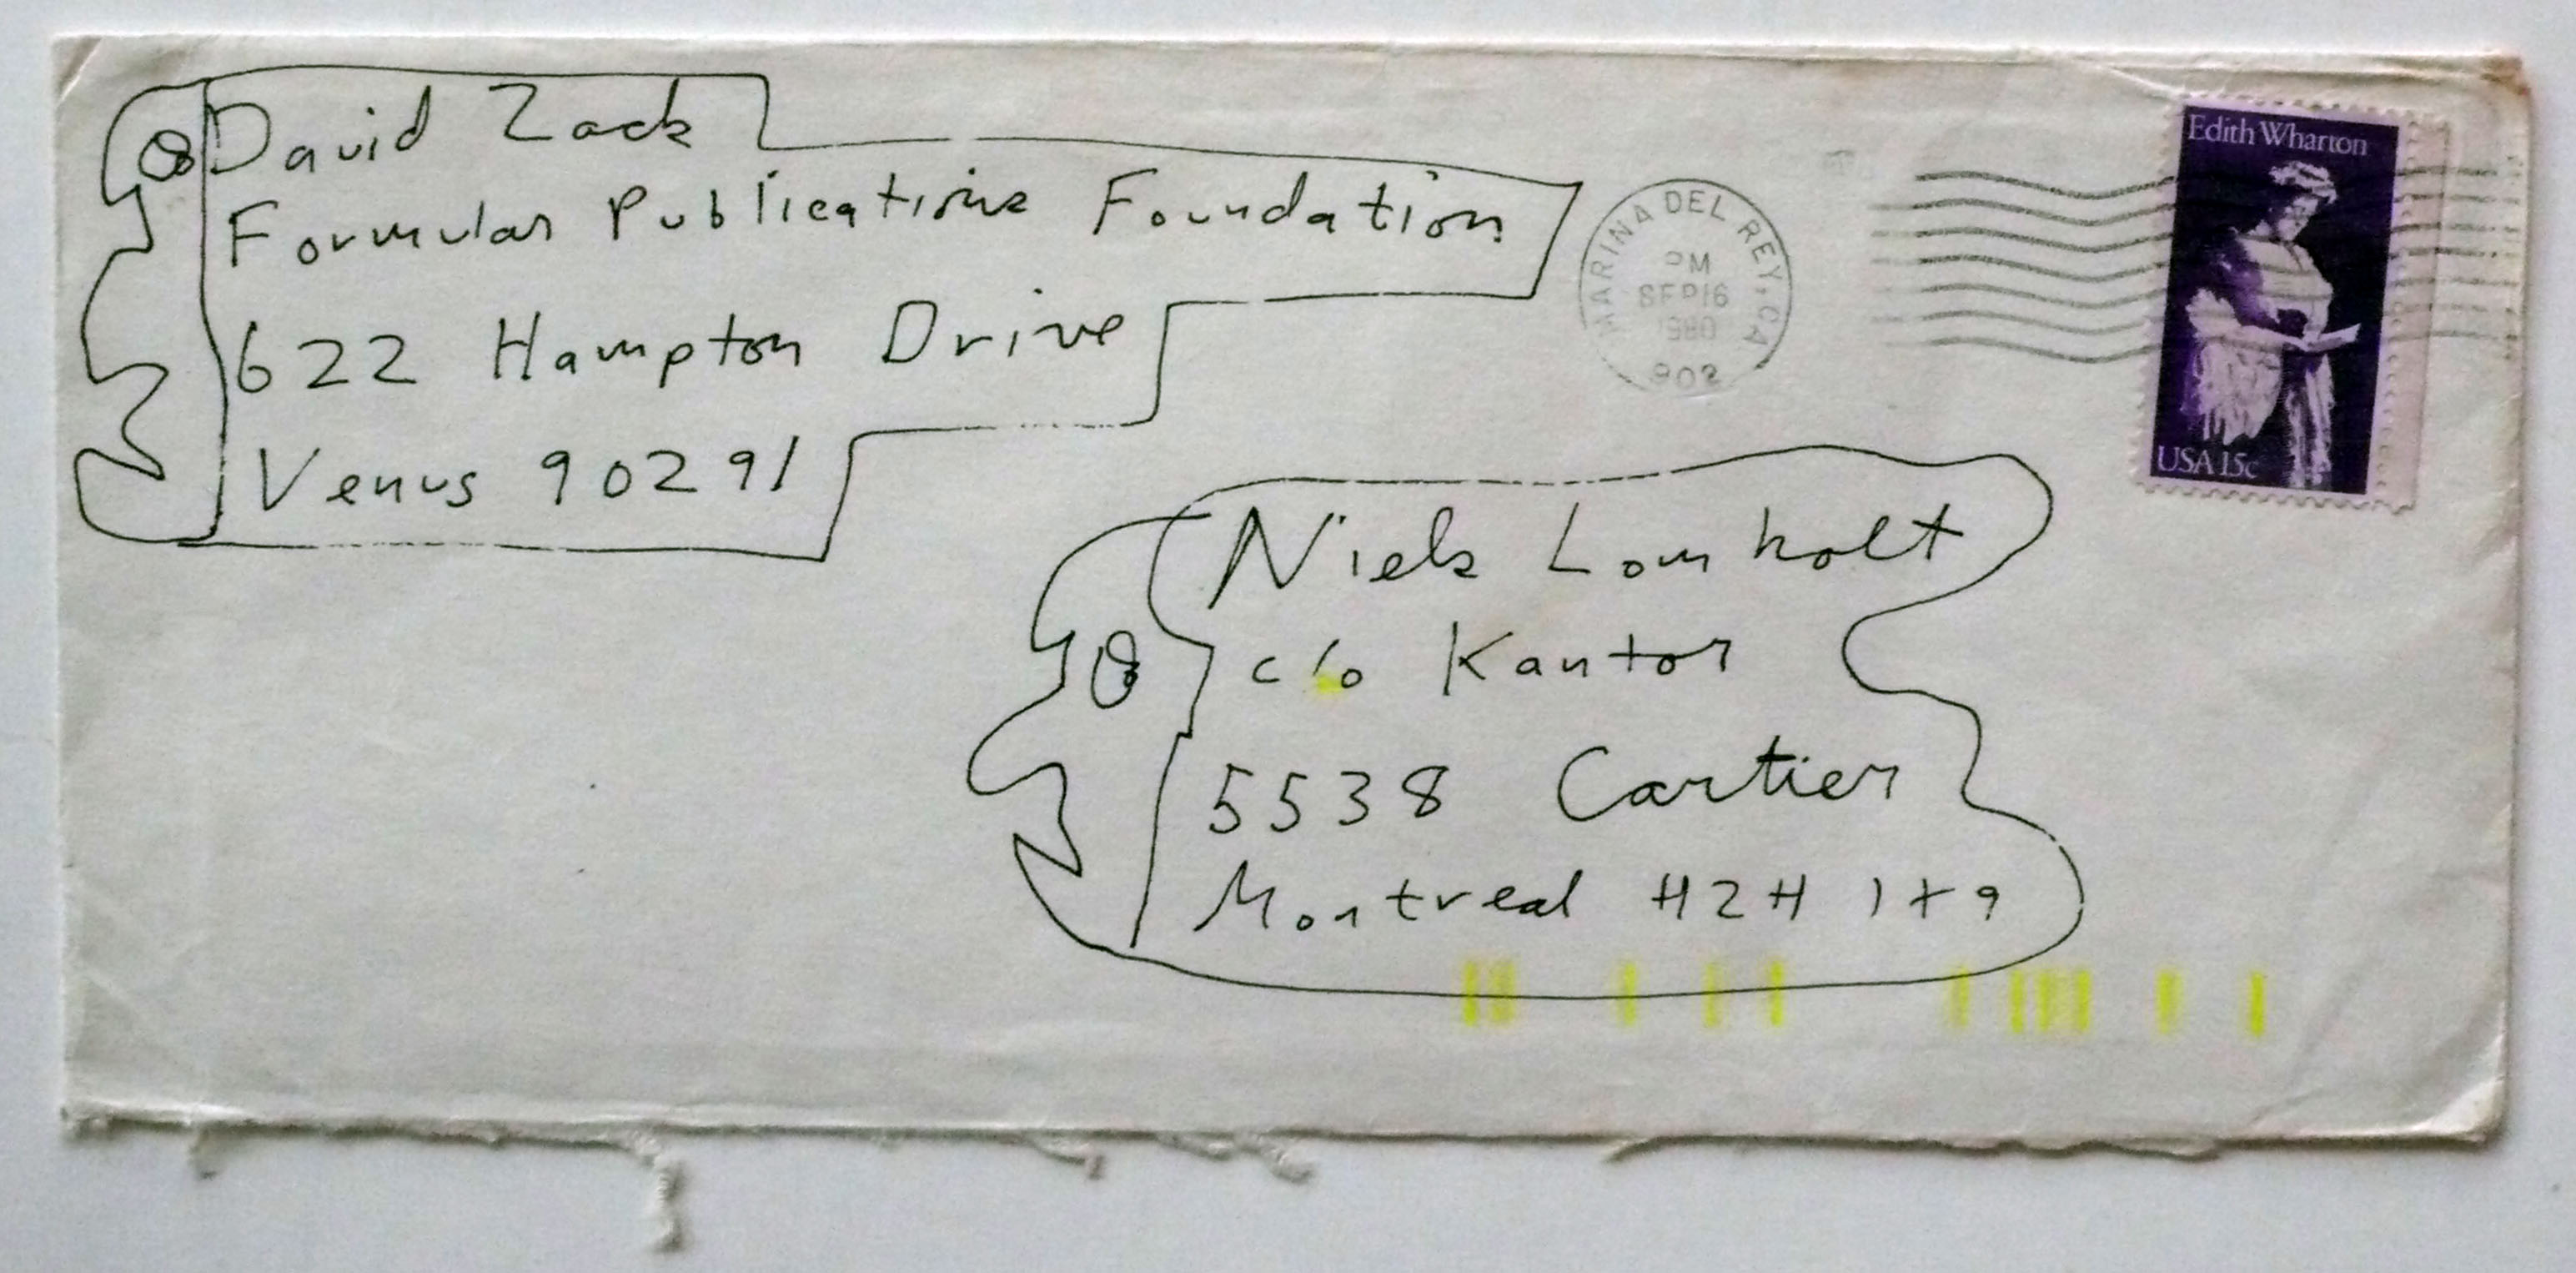 David Zack
Formular Publications Foundation
622 Hampton Drive
Venus 90291
MARINA DEL REY, CA
PM
SEP 16
1980
902
Edith Wharton
USA 15c
Niels Lomholt
c/o Kantor
5538 Cartier
Montreal H2H 1X9